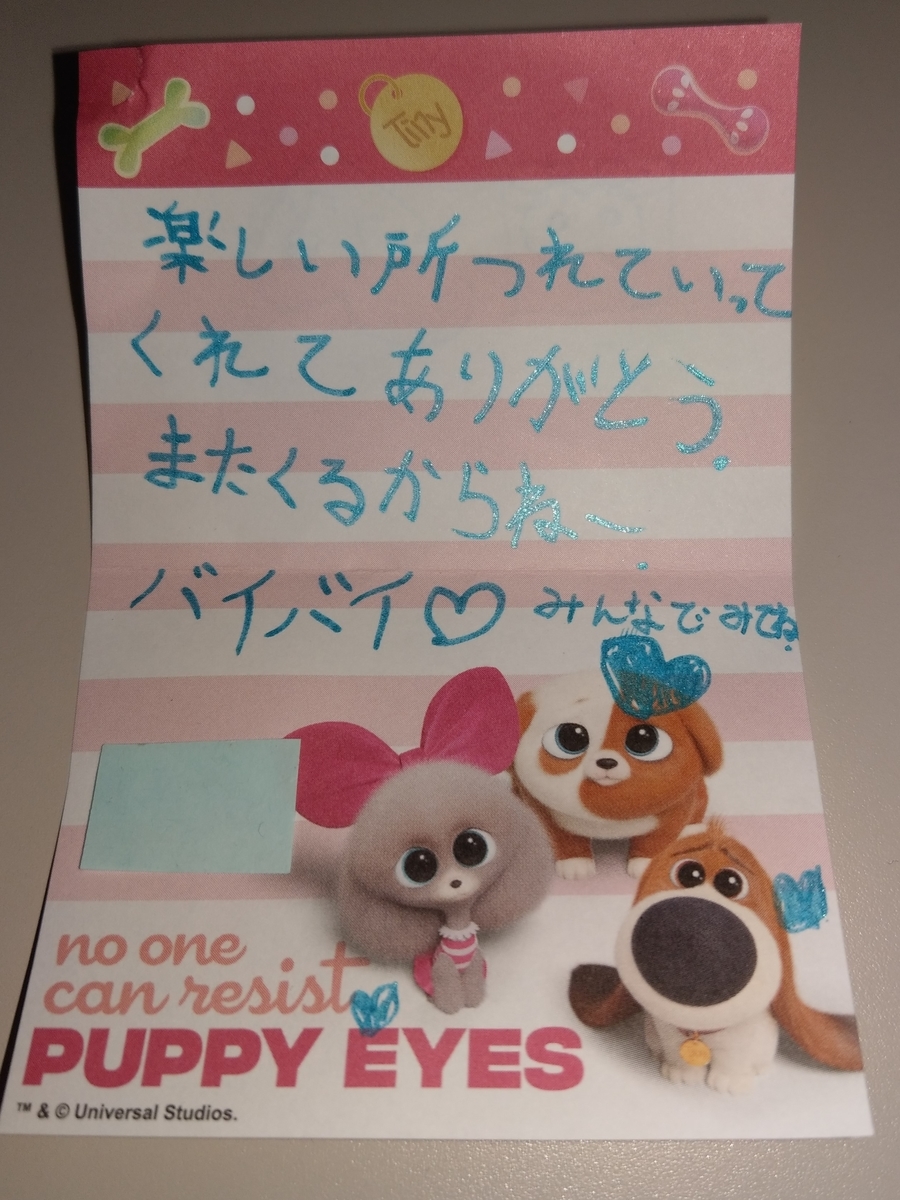 Tiny
楽しい所つれていって
くれてありがとう。
またくるからね〜。
バイバイ♡ みんなでみてね。
no one
can resist
PUPPY EYES
™ & © Universal Studios.